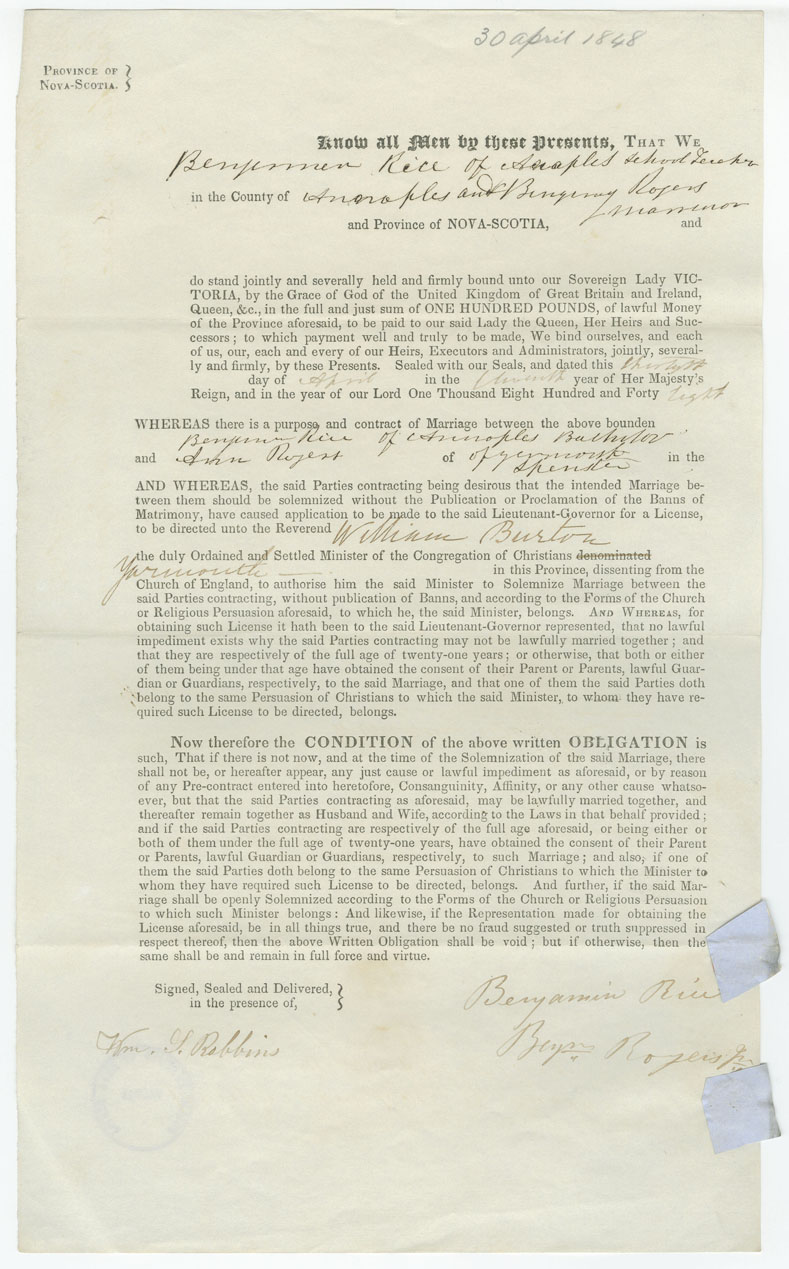 30 april 1848
PROVINCE OF
NOVA-SCOTIA. }
Know all Men by these Presents, THAT WE
Benjemen Rice of Anaples School Teacher
in the County of Annaples and Rogers
and Province of NOVA-SCOTIA, and
do stand jointly and severally held and firmly bound unto our Sovereign Lady VIC-
TORIA, by the Grace of God of the United Kingdom of Great Britain and Ireland,
Queen, &c., in the full and just sum of ONE HUNDRED POUNDS, of lawful Money
of the Province aforesaid, to be paid to our said Lady the Queen, Her Heirs and Suc-
cessors; to which payment well and truly to be made, We bind ourselves, and each
of us, our, each and every of our Heirs, Executors and Administrators, jointly, several-
ly and firmly, by these Presents. Sealed with our Seals, and dated this
day of April in the year of Her Majesty's
Reign, and in the year of our Lord One Thousand Eight Hundred and Forty Eight
WHEREAS there is a purpose and contract of Marriage between the above bounden
Benjemen Rice of Annaples
and Ann Rogers of of in the
AND WHEREAS, the said Parties contracting being desirous that the intended Marriage be-
tween them should be solemnized without the Publication or Proclamation of the Banns of
Matrimony, have caused application to be made to the said Lieutenant-Governor for a License,
to be directed unto the Reverend William Burton
the duly Ordained and Settled Minister of the Congregation of Christians denominated
Yarmouth in this Province, dissenting from the
Church of England, to authorise him the said Minister to Solemnize Marriage between the
said Parties contracting, without publication of Banns, and according to the Forms of the Church
or Religious Persuasion aforesaid, to which he, the said Minister, belongs. AND WHEREAS, for
obtaining such License it hath been to the said Lieutenant-Governor represented, that no lawful
impediment exists why the said Parties contracting may not be lawfully married together; and
that they are respectively of the full age of twenty-one years; or otherwise, that both or either
of them being under that age have obtained the consent of their Parent or Parents, lawful Guar-
dian or Guardians, respectively, to the said Marriage, and that one of them the said Parties doth
belong to the same Persuasion of Christians to which the said Minister, to whom they have re-
quired such License to be directed, belongs.
Now therefore the CONDITION of the above written OBLIGATION is
such, That if there is not now, and at the time of the Solemnization of the said Marriage, there
shall not be, or hereafter appear, any just cause or lawful impediment as aforesaid, or by reason
of any Pre-contract entered into heretofore, Consanguinity, Affinity, or any other cause whatso-
ever, but that the said Parties contracting as aforesaid, may be lawfully married together, and
thereafter remain together as Husband and Wife, according to the Laws in that behalf provided;
and if the said Parties contracting are respectively of the full age aforesaid, or being either or
both of them under the full age of twenty-one years, have obtained the consent of their Parent
or Parents, lawful Guardian or Guardians, respectively, to such Marriage; and also, if one of
them the said Parties doth belong to the same Persuasion of Christians to which the Minister to
whom they have required such License to be directed, belongs. And further, if the said Mar-
riage shall be openly Solemnized according to the Forms of the Church or Religious Persuasion
to which such Minister belongs: And likewise, if the Representation made for obtaining the
License aforesaid, be in all things true, and there be no fraud suggested or truth suppressed in
respect thereof, then the above Written Obligation shall be void; but if otherwise, then the
same shall be and remain in full force and virtue.
Signed, Sealed and Delivered,
in the presence of, }
Benjamin Rice
Wm. S. Robbins
Benjn Rogers Jr